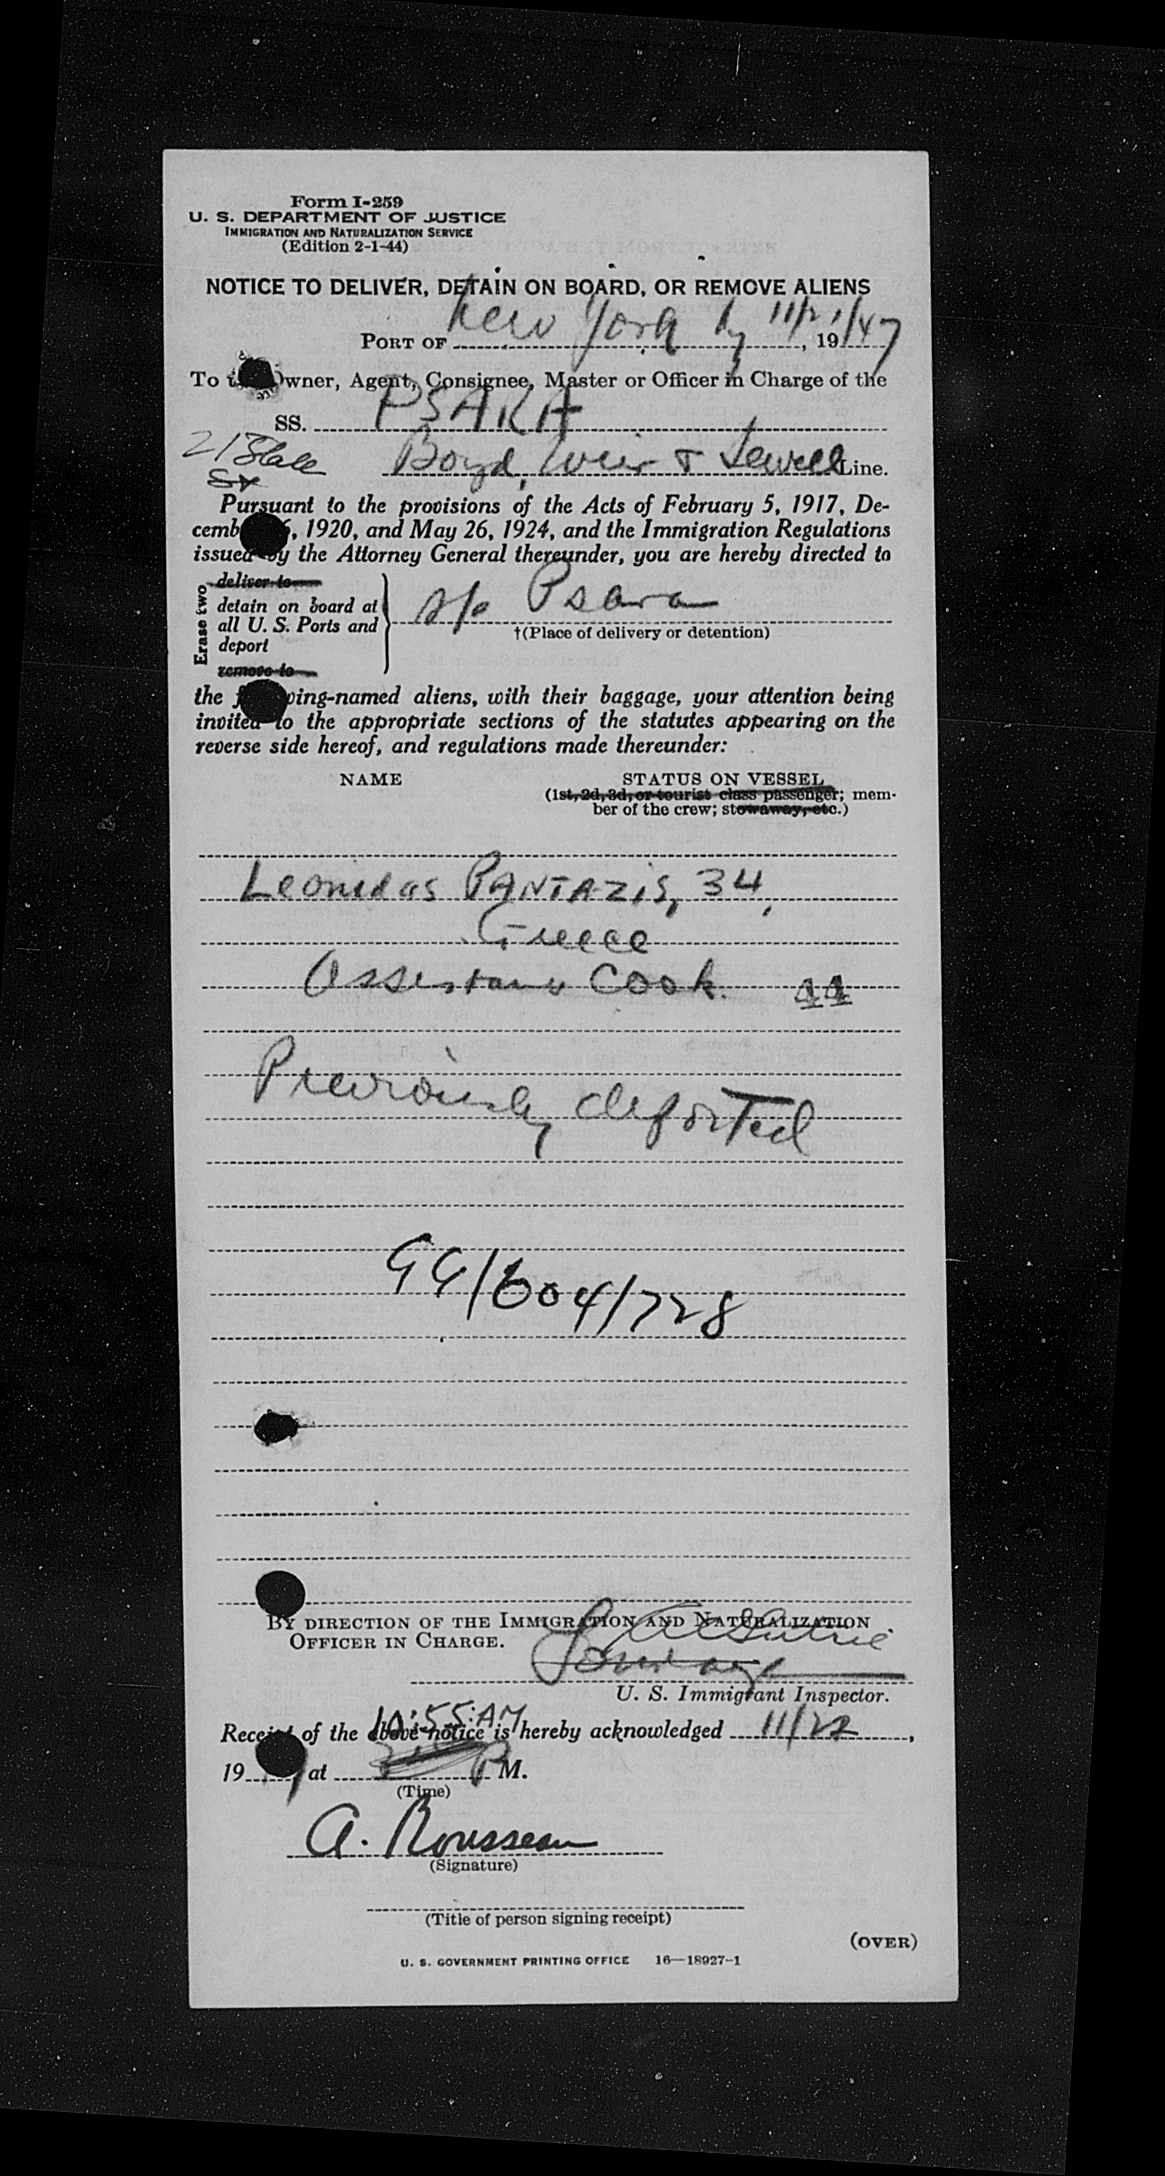 Form I-259
U. S. DEPARTMENT OF JUSTICE
IMMIGRATION AND NATURALIZATION SERVICE
(Edition 2-1-44)
NOTICE TO DELIVER, DETAIN ON BOARD, OR REMOVE ALIENS
PORT OF New York Ny 11/21/47, 19
To t Owner, Agent, Consignee, Master or Officer in Charge of the
SS. PSARA
21 State St Boyd, Weir & Sewell Line.
Pursuant to the provisions of the Acts of February 5, 1917, De-
cemb 6, 1920, and May 26, 1924, and the Immigration Regulations
issued by the Attorney General thereunder, you are hereby directed to
Erase two
deliver to
detain on board at
all U. S. Ports and
deport
remove to
s/s Psara
†(Place of delivery or detention)
the f wing-named aliens, with their baggage, your attention being
invited to the appropriate sections of the statutes appearing on the
reverse side hereof, and regulations made thereunder:
NAME STATUS ON VESSEL
(1st, 2d, 3d, or tourist class passenger; mem-
ber of the crew; stowaway, etc.)
Leonidas PANTAZIS, 34,
Greece
Assistant Cook. 44
Previously deported
99/604/728
BY DIRECTION OF THE IMMIGRATION AND NATURALIZATION
OFFICER IN CHARGE.
U. S. Immigrant Inspector.
10:55 AM
Receipt of the above notice is hereby acknowledged 11/22,
19 at P M.
(Time)
A. Rousseau
(Signature)
(Title of person signing receipt)
(OVER)
U. S. GOVERNMENT PRINTING OFFICE 16—18927-1